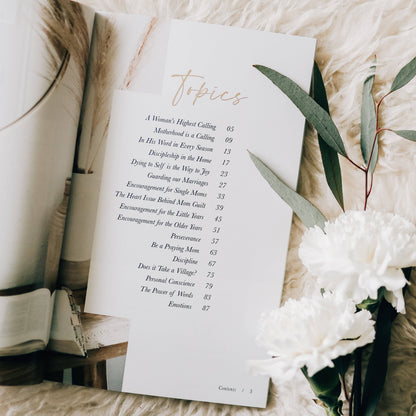 Topics
A Woman's Highest Calling 05
Motherhood is a Calling 09
In His Word in Every Season 13
Discipleship in the Home 17
Dying to Self is the Way to Joy 23
Guarding our Marriages 27
Encouragement for Single Moms 33
The Heart Issue Behind Mom Guilt 39
Encouragement for the Little Years 45
Encouragement for the Older Years 51
Perseverance 57
Be a Praying Mom 63
Discipline 67
Does it Take a Village? 75
Personal Conscience 79
The Power of Words 83
Emotions 87
Contents / 3